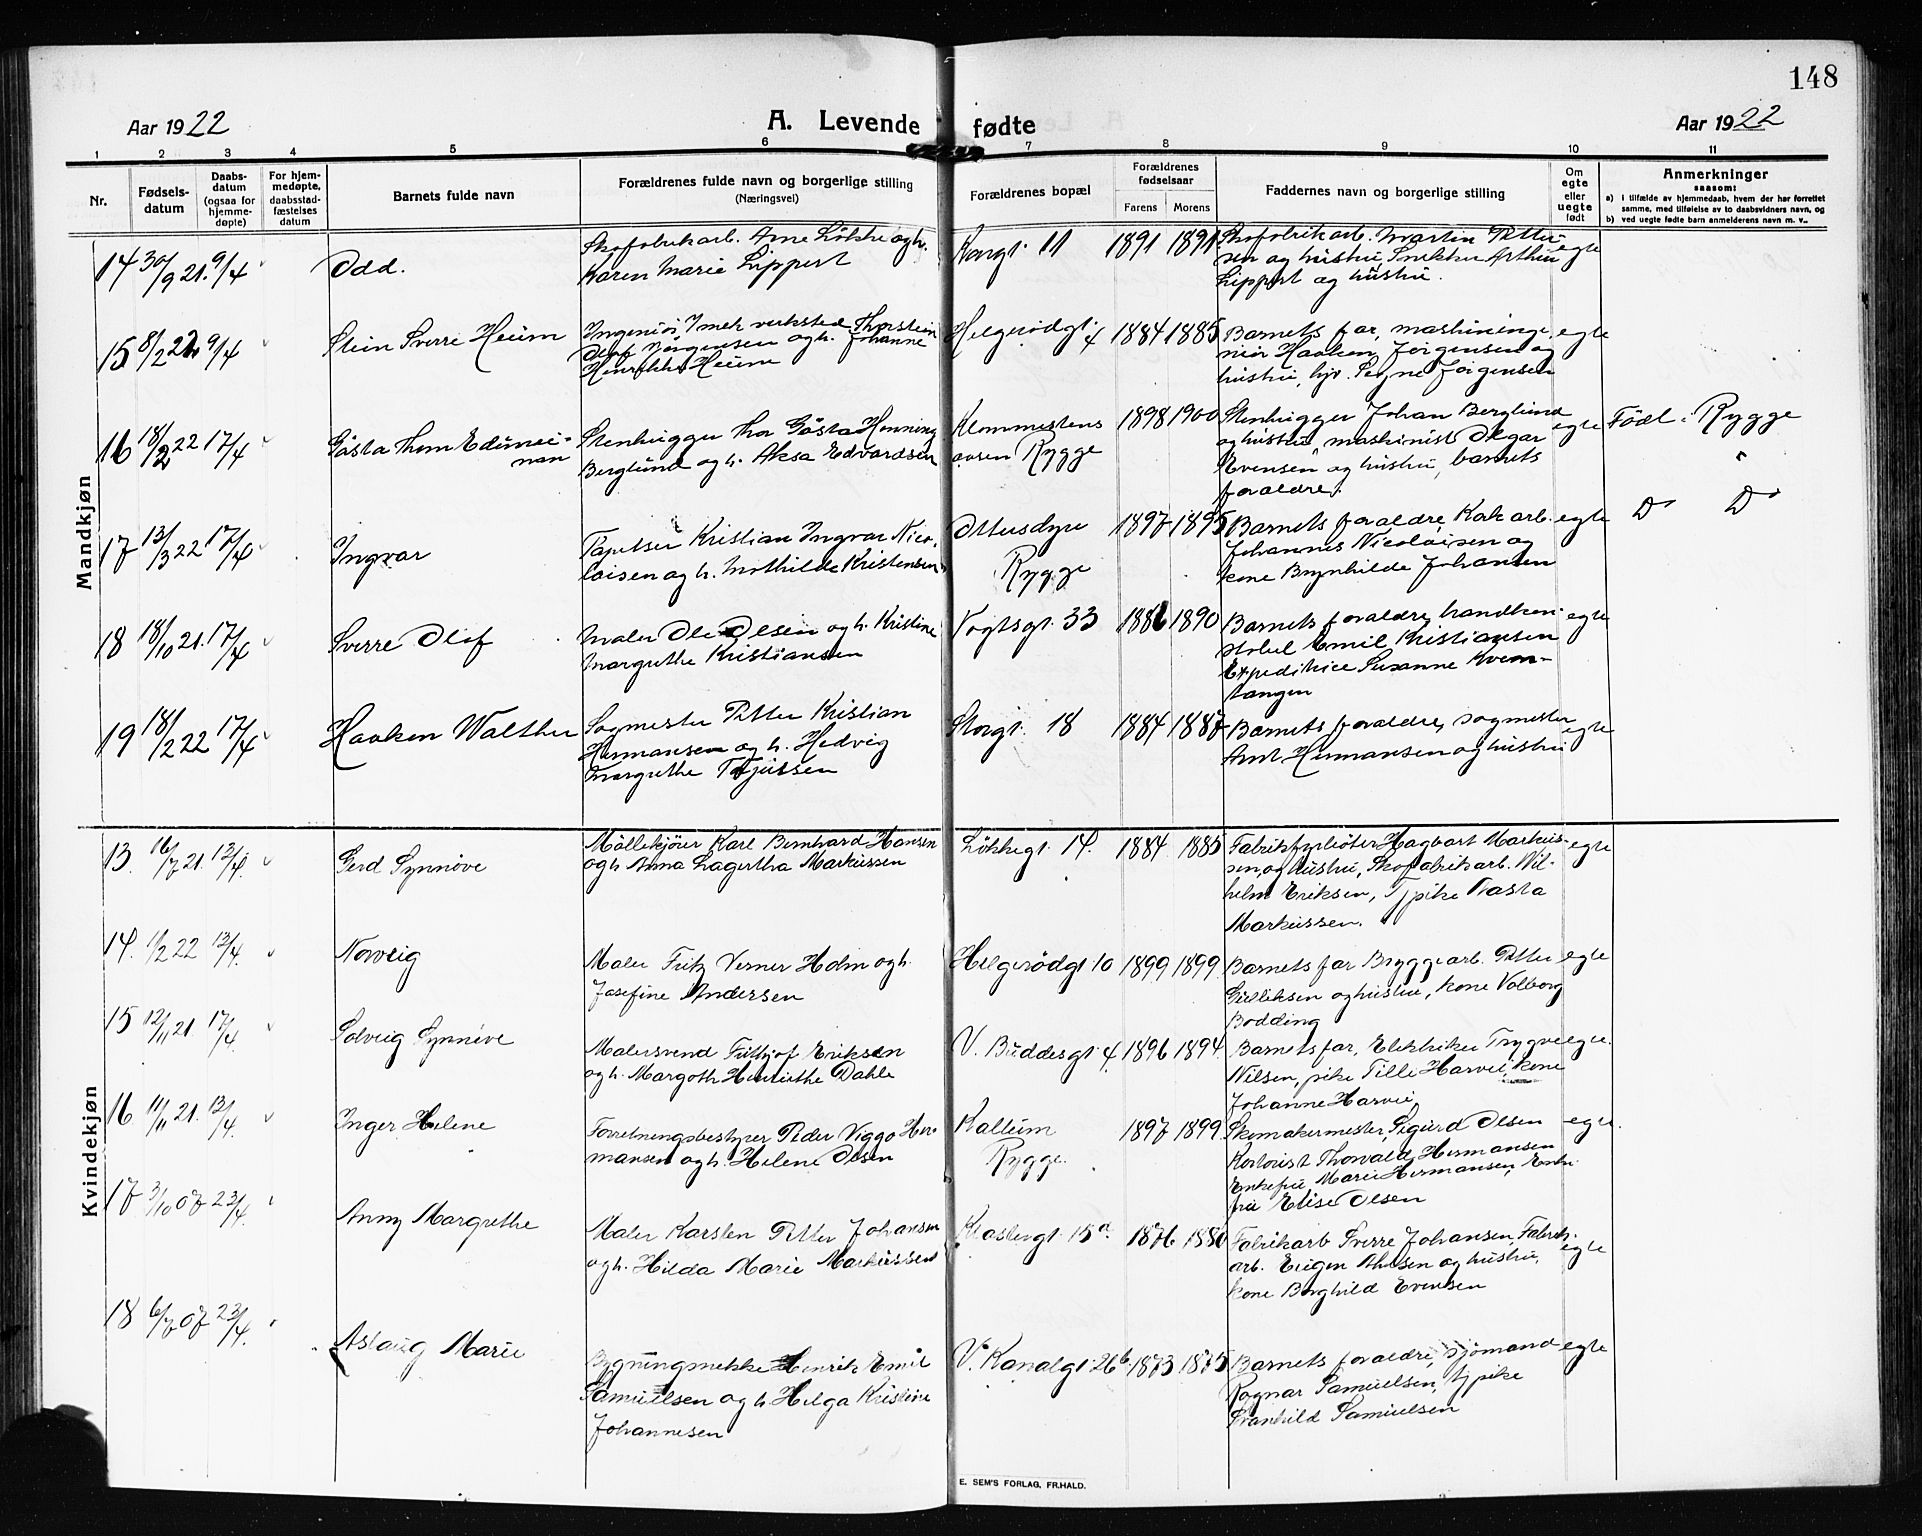 148
Aar 1922 A. Levende fødte Aar 1922
1 2 3 4 5 6 7 8 9 10 11
Nr. Fødsels-datum Daabs-datum (ogsaa for hjemme-døpte) For hjem-medøpte, daabsstad-fæstelses datum Barnets fulde navn Forældrenes fulde navn og borgerlige stilling (Næringsvei) Forældrenes bopæl Forældrenes fødselsaar Farens Morens Faddernes navn og borgerlige stilling Om egte eller uegte født Anmerkninger saasom: a) i tilfælde av hjemmedaab, hvem der har forrettet samme, med tilføielse av to daabsvidners navn, og b) ved uegte fødte barn anmelderens navn m. v..
Mandkjøn
14 30/9 21. 9/4 Odd. Skofabrikarb. Arne Løkke og h.
Karen Marie Lippert
Kongt. 11 1891 1891 Skofabrikarb. Martin Petter-
sen og hustru, Snekker Arthur
Lippert og hustru. egte
15 8/2 22 9/4 Stein Sverre Heum Ingeniør I mek verksted Thorstein
Olaf Jørgensen og h. Johanne
Henrikke Heum
Helgerødgt. 4 1884 1885 Barnets far, maskininge-
niør Haaken Jørgensen og
hustru, hjv. Signe Jørgensen egte
16 18/2 22 17/4 Gösta Thom Edunei-
nan Stenhugger Thor Gösta Henning
Berglund og h. Aksa Edvardsen
Klommestens
aasen Rygge 1898 1900 Stenhugger Johan Berglund
og hustru, maskinist Olgar
Evensen og hustru, barnets
foraldre. egte Født i Rygge
17 13/3 22 17/4 Ingvar Tapetser Kristian Ingvar Nico-
laisen og h. Mathilde Kristensen
Ottersdyr
Rygge 1897 1895 Barnets foraldre, Kakarb.
Johannes Nicolaisen og
kone Brynhilde Johansen egte Do Do
18 18/10 21. 17/4 Sverre Olaf Maler Ole Olsen og h. Kristine
Margrethe Kristiansen
Vogtsgt. 33 1886 1890 Barnets foraldre, handken-
stabel Emil Kristiansen
Expeditrice Susanne Kvern-
tangen egte
19 18/2 22 17/4 Haaken Walther Sagmester Petter Kristian
Hermansen og h. Hedvig
Margrethe Terjussen
Storgt. 18 1884 1887 Barnets foraldre, sagmester
Arnt Hermansen og hustru egte
Kvindekjøn
13. 16/7 21. 13/4. Gerd Synnøve Møllekjører Karl Bernhard Hansen
og h. Anna Lagertha Markussen
Løkkegt. 14. 1884 1885 Fabrikfyrbøter Hagbart Markus-
sen, og hustru, Skofabrikarb. Wil-
helm Eriksen, Tjpike Nasta
Markussen. egte
14. 1/2 22 13/4. Norveig Maler Fritz Verner Holm og h.
Josefine Andersen
Helgerødgt. 10 1899 1899 Barnets far Bryggearb. Petter
Gulliksen og hustru, kone Valborg
Bodding egte
15 12/11 21. 17/4. Solveig Synnøve Malersvend Fritjof Eriksen
og h. Margoth Henriette Dahle
V. Buddesgt. 4. 1896 1894. Barnets far, Elektriker Trygve
Nilsen, pike Tilli Harvei, kone
Johanne Harvei egte.
16 11/11 21. 13/4. Inger Helene Forretningsbestyrer Peder Viggo Her-
mansen og h. Helene Olsen
Kallum
Rygge. 1897 1899 Skomakermester, Sigurd Olsen
Kontorist Thorvald Hermansen
Enkefru Marie Hermansen, Enke-
fru Elise Olsen egte.
17 3/10 07 23/4. Anny Margrethe Maler Karsten Petter Johansen
og h. Hilda Marie Markussen
Klostergt. 15a. 1876 1880 Fabrikarb Sverre Johansen, Fabrik-
arb. Eugen Ahlsen og hustru,
kone Borghild Evensen egte
18 6/7 07 23/4. Aslaug Marie Bygningsnekke Henrik Emil
Samuelsen og h. Helga Kristine
Johannesen
V. Kanalgt. 26b. 1873 1875 Barnets foraldre, Sjømand
Ragnar Samuelsen, tjpike
Svanhild Samuelsen egte
E. SEM'S FORLAG, FR.HALD.